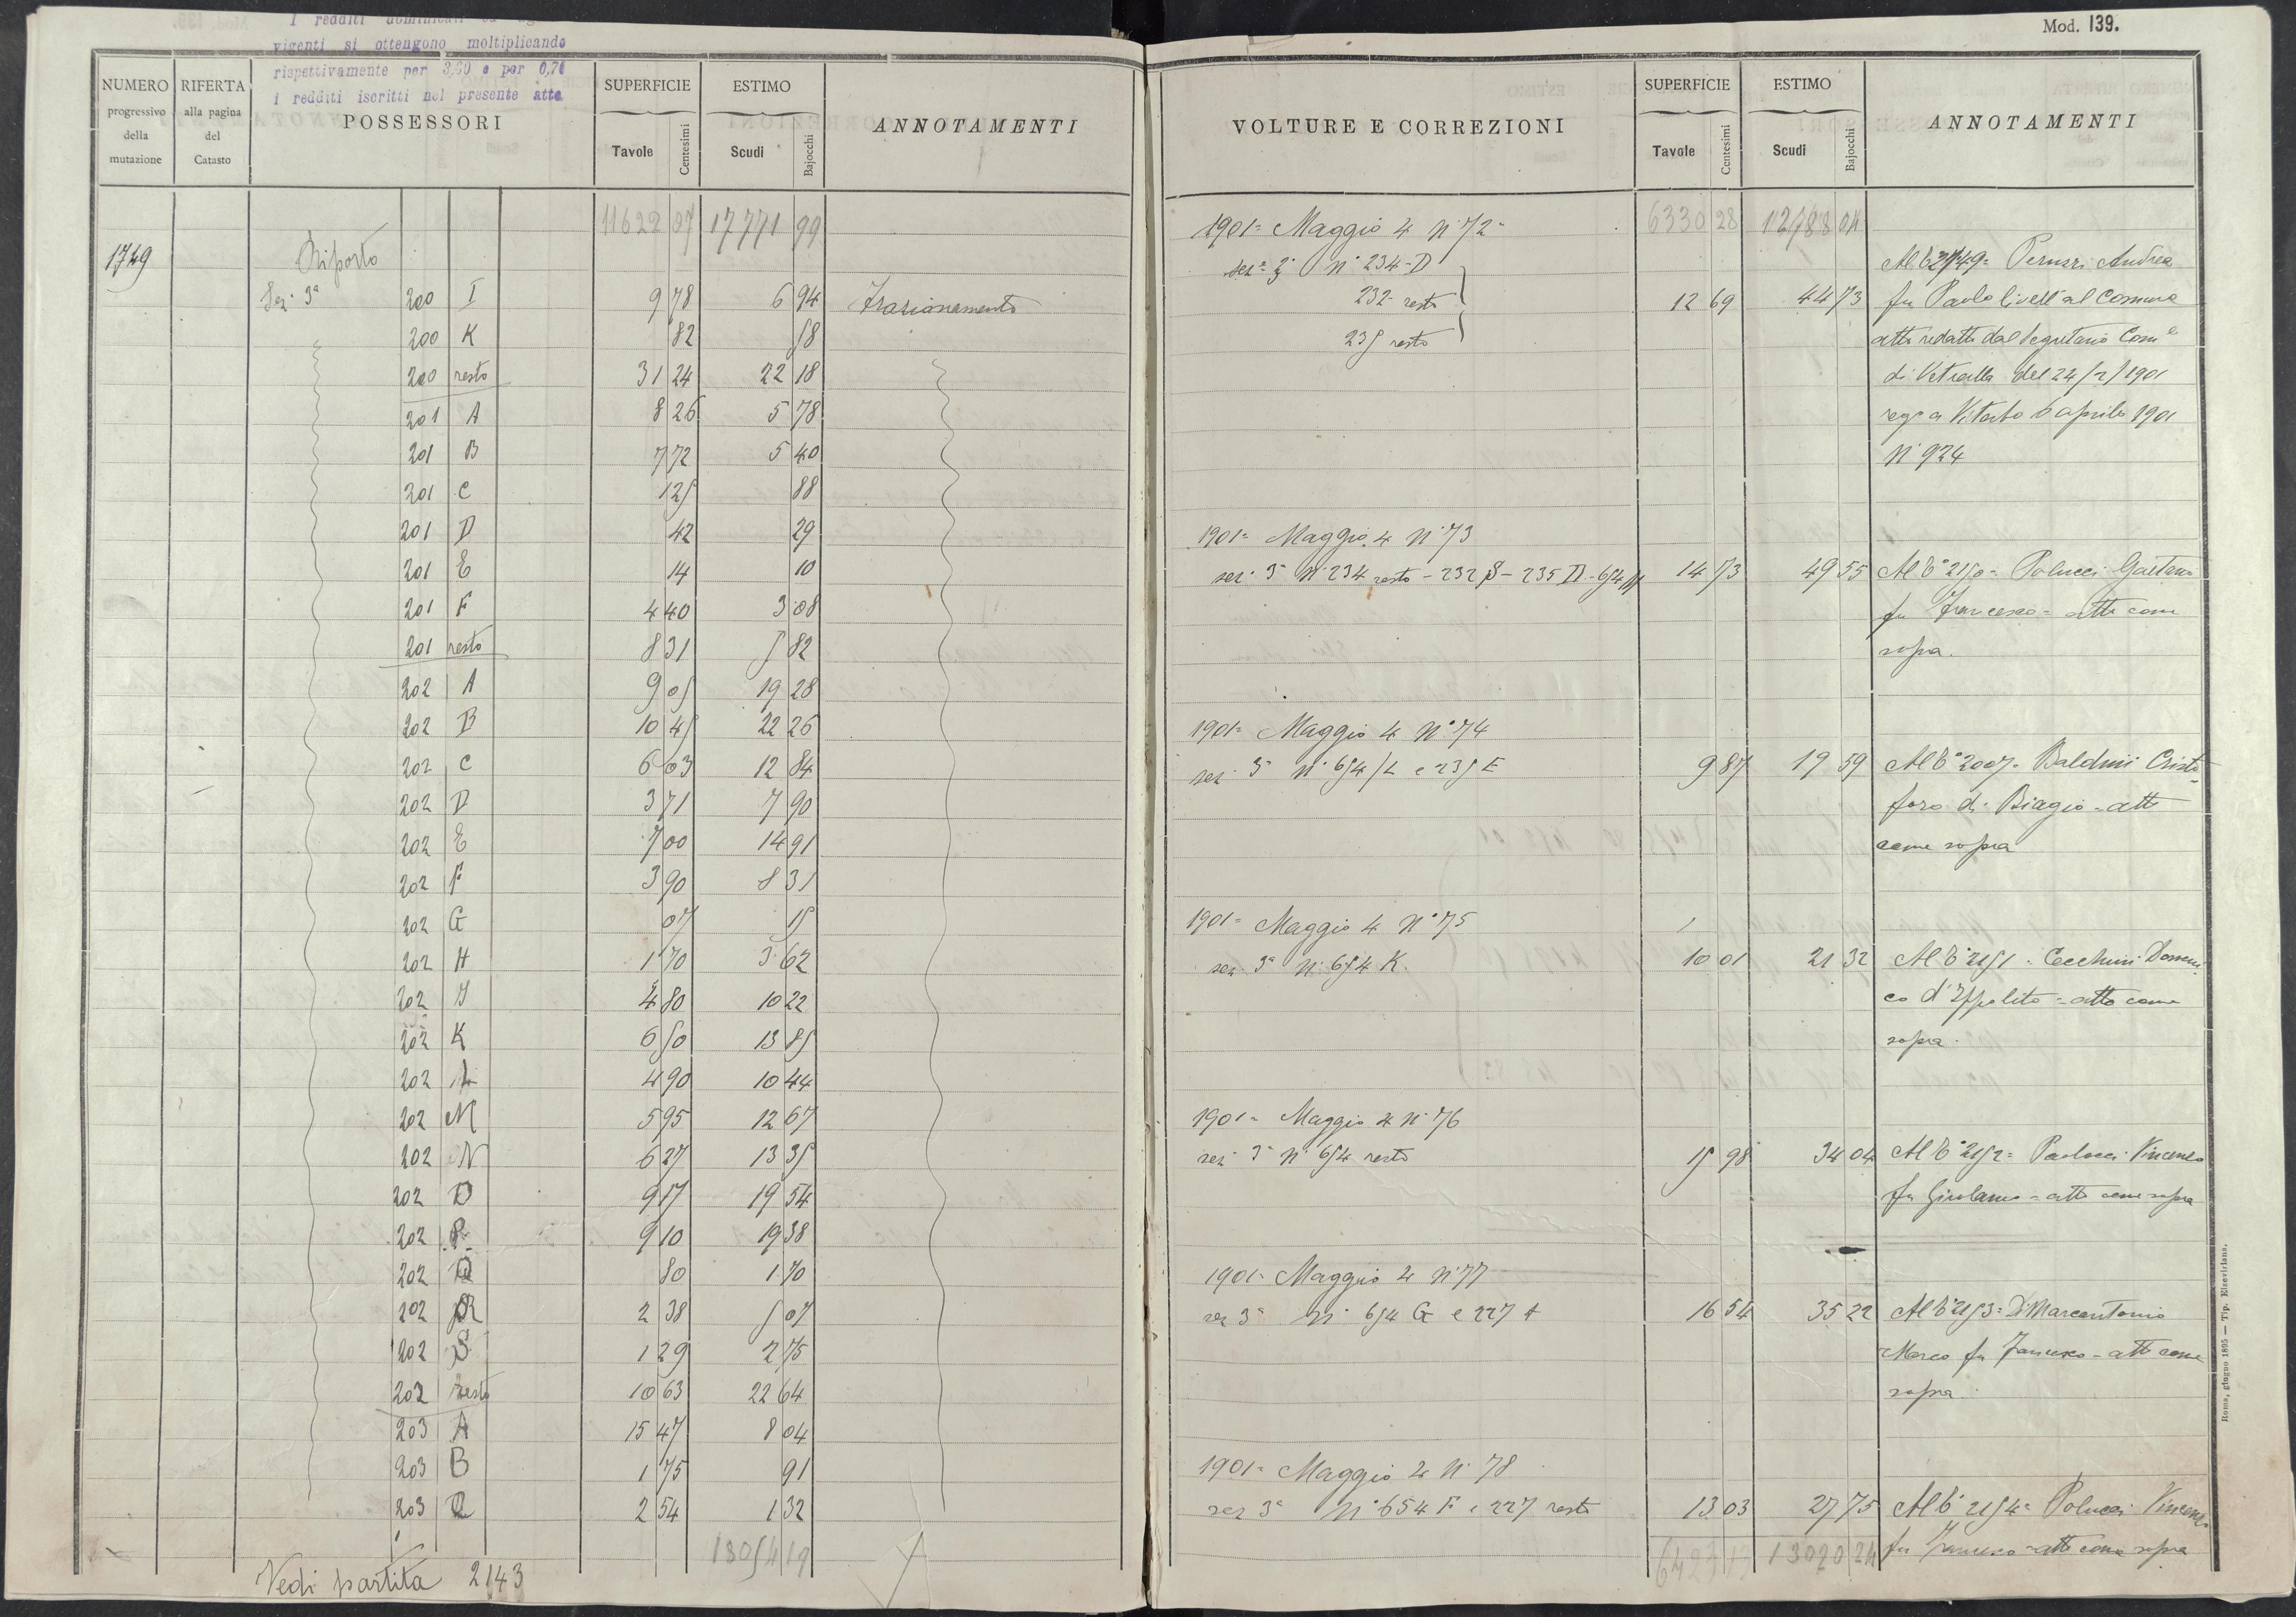 vigenti si ottengono moltiplicando
rispettivamente per 3,60 e per 0,70
i redditi iscritti nel presente atto
NUMERO progressivo della mutazione
RIFERTA alla pagina del Catasto
POSSESSORI
SUPERFICIE Tavole Centesimi
ESTIMO Scudi Bajocchi
ANNOTAMENTI
11622 07 17771 99
1749 Riporto
Sez. 3ª 200 I 9 78 6 94 Frazionamento
200 K 82 58
200 resto 31 24 22 18
201 A 8 26 5 78
201 B 7 72 5 40
201 C 1 25 88
201 D 42 29
201 E 14 10
201 F 4 40 3 08
201 resto 8 31 5 82
202 A 9 05 19 28
202 B 10 45 22 26
202 C 6 03 12 84
202 D 3 71 7 90
202 E 7 00 14 91
202 F 3 90 8 31
202 G 07 15
202 H 1 70 3 62
202 I 4 80 10 22
202 K 6 50 13 85
202 L 4 90 10 44
202 M 5 95 12 67
202 N 6 27 13 35
202 O 9 17 19 54
202 P 9 10 19 38
202 Q 80 1 70
202 R 2 38 5 07
202 S 1 29 2 75
202 resto 10 63 22 64
203 A 15 47 8 04
203 B 1 75 91
203 2 54 1 32
1805 4 19
Vedi partita 2143
Mod. 139.
VOLTURE E CORREZIONI
SUPERFICIE Tavole Centesimi
ESTIMO Scudi Bajocchi
ANNOTAMENTI
6330 28 12788 04
1901 = Maggio 4 N° 72
sez. 3ª N° 234 - D
232 - resto 12 69 44 73
235 resto
Peruzzi Andrea
fu Paolo livell° al Comune
atto redatto dal Segretario Com.e
di Vetralla del 24/2/1901
reg° a Viterbo 6 aprile 1901
N° 924
1901 = Maggio 4 N° 73
sez. 3ª N° 234 resto - 232 S - 235 D - 654 14 73 49 55
Al 6° 2150 = Polucci Gaetano
fu Francesco = atto come
sopra.
1901 = Maggio 4 N° 74
sez. 3ª N° 654/L e 235 E 9 87 19 59
Al 6° 2007 = Baldini Cristo-
foro di Biagio = atto
come sopra
1901 = Maggio 4 N° 75
sez. 3ª N° 654 K. 10 01 21 32
Al 6° 2151 = Cecchini Domeni
co d'Ippolito = atto come
sopra.
1901 = Maggio 4 N° 76
sez. 3ª N° 654 resto 15 98 34 04
Al 6° 2152 = Paolucci Vincenzo
fu Girolamo = atto come sopra
1901 = Maggio 4 N° 77
sez 3ª N° 654 G e 227 A 16 54 35 22
Al 6° 2153 = Di Marcantonio
Marco fu Francesco = atto come
sopra.
1901 = Maggio 4 N° 78
sez 3ª N° 654 F e 227 resto 13 03 27 75
Al 6° 2154 = Polucci Vincenzo
fu Francesco = atto come sopra
6423 13 13020 24
Roma, giugno 1895 — Tip. Elzeviriana.